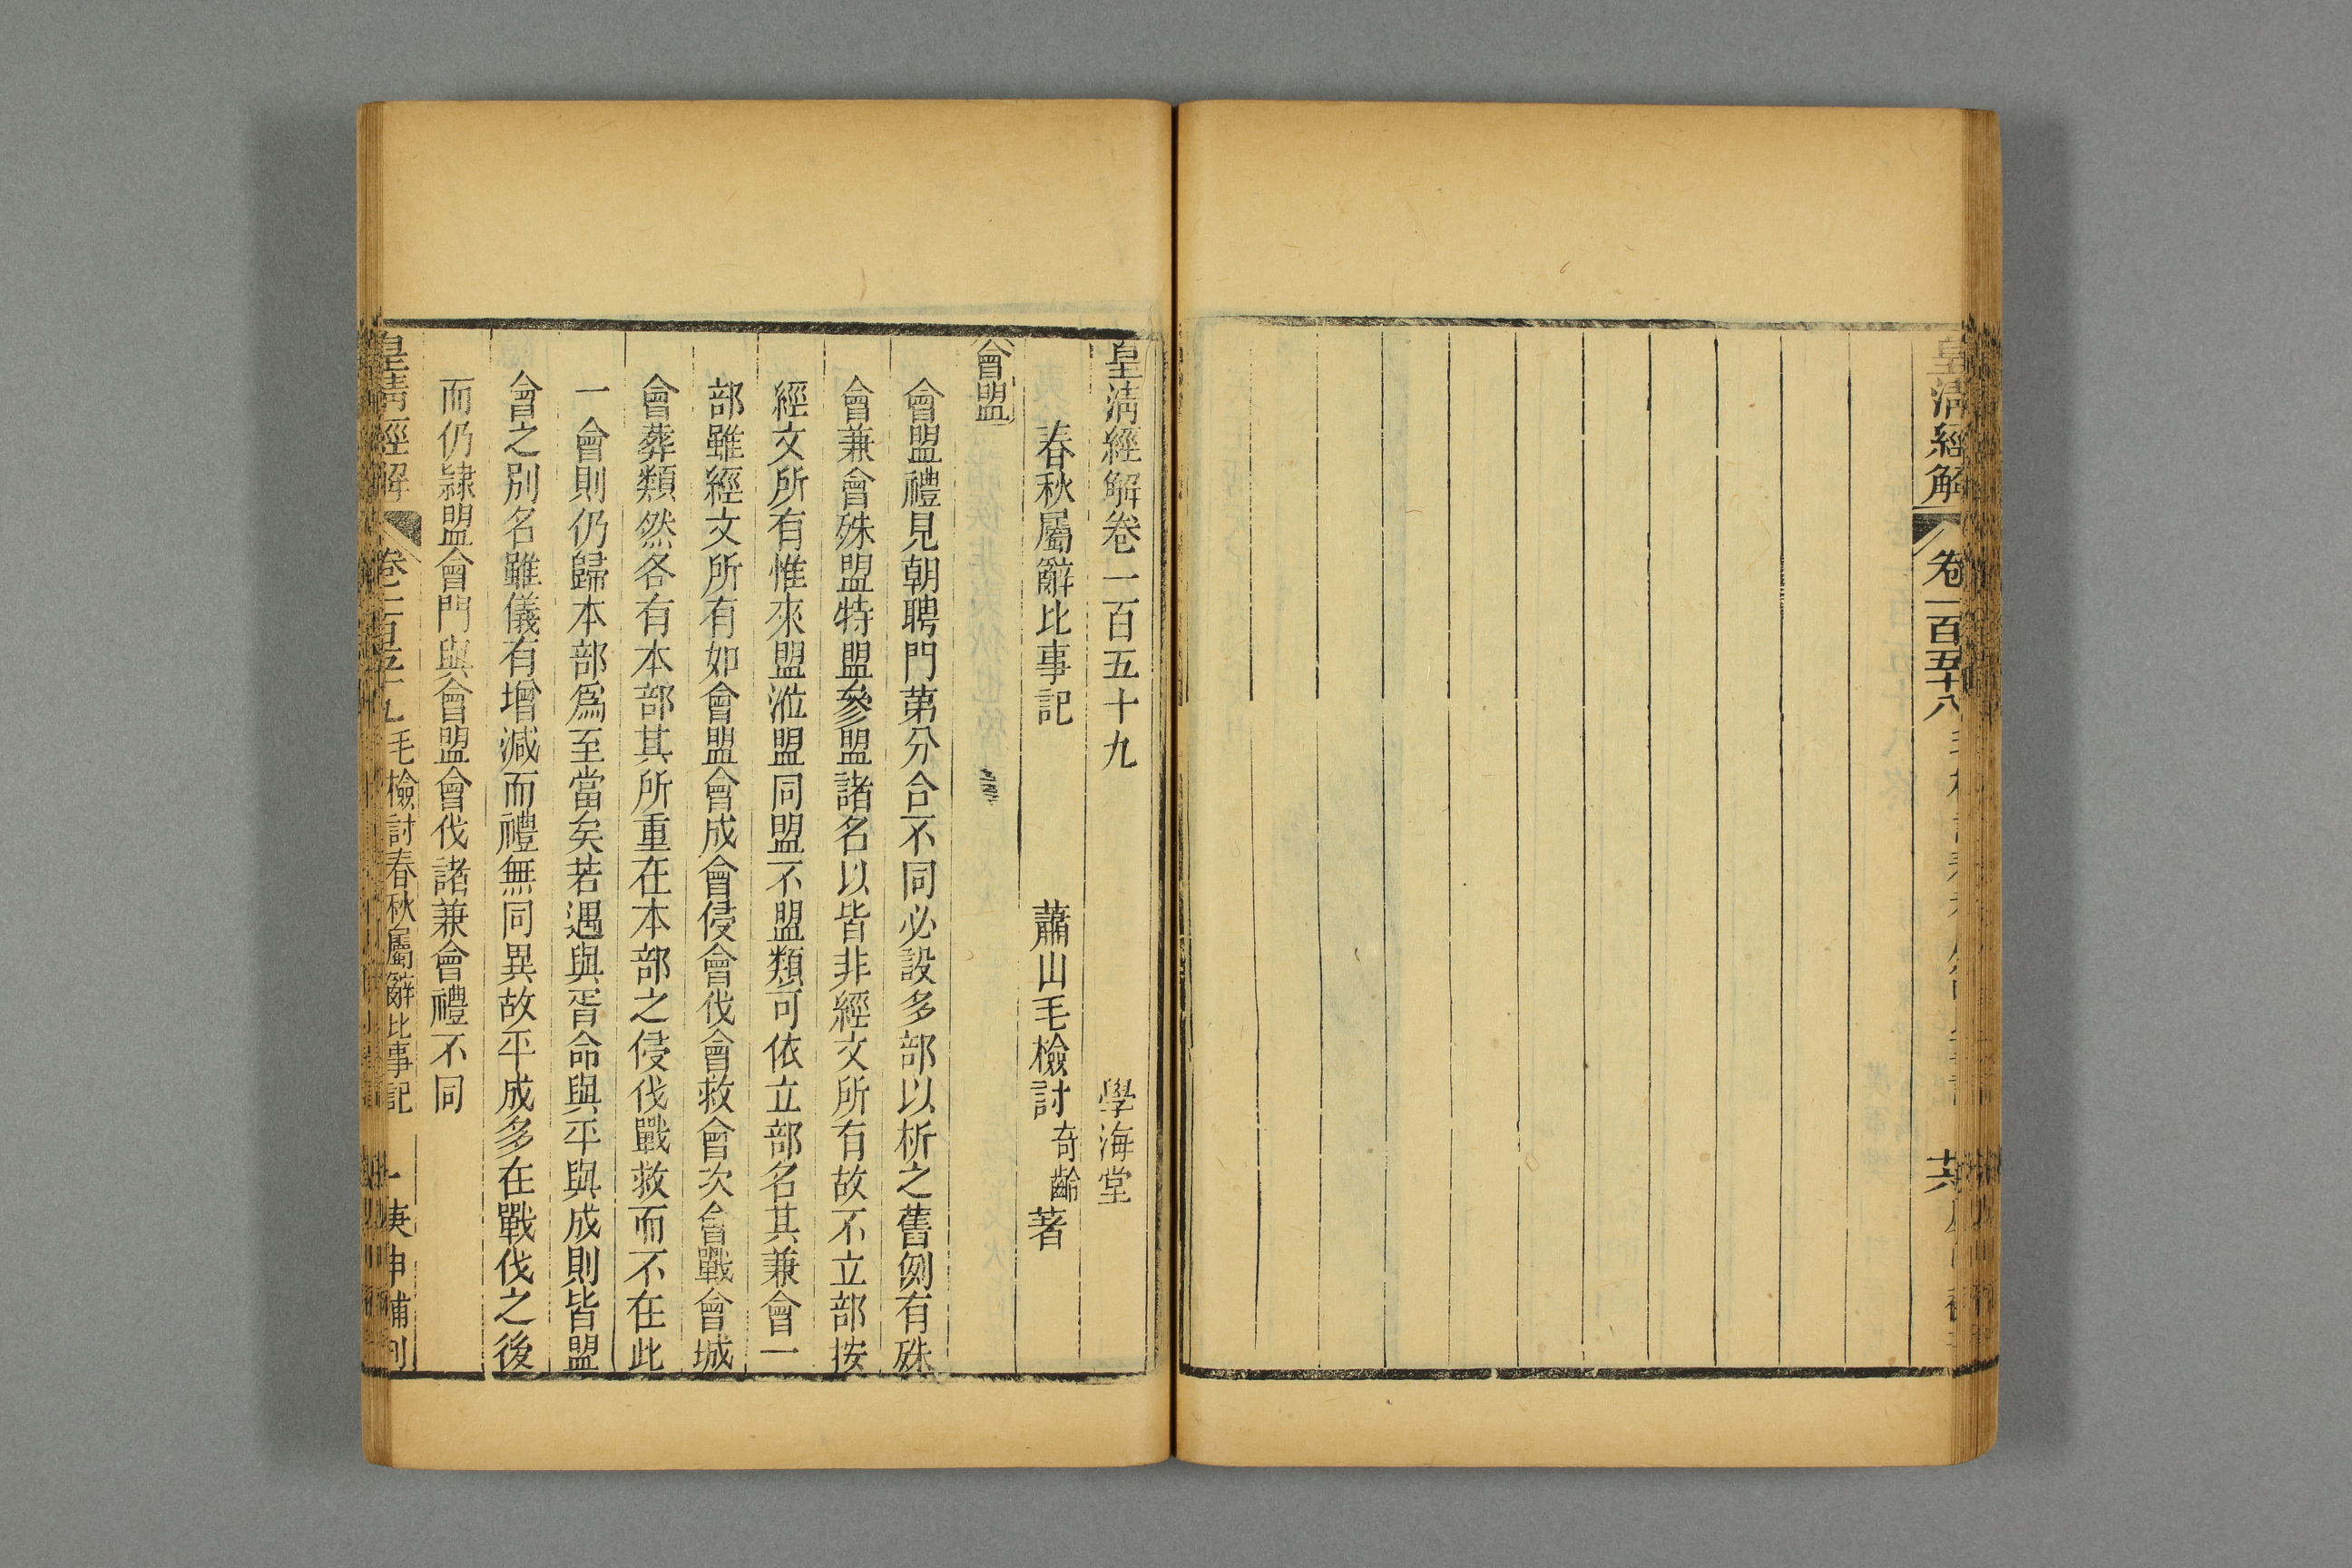 皇清經解
卷一百五十八
皇清經解卷一百五十九
學海堂
春秋屬辭比事記
蕭山毛檢討奇齡著
會盟
會盟禮見朝聘門第分合不同必設多部以析之舊例有殊
會兼會殊盟特盟參盟諸名以皆非經文所有故不立部按
經文所有惟來盟涖盟同盟不盟類可依立部名其兼會一
部雖經文所有如會盟會成會侵會伐會救會次會戰會城
會葬類然各有本部其所重在本部之侵伐戰救而不在此
一會則仍歸本部為至當矣若遇與胥命與平與成則皆盟
會之別名雖儀有增減而禮無同異故平成多在戰伐之後
而仍隸盟會門與會盟會伐諸兼會禮不同
皇清經解
毛檢討春秋屬辭比事記
一
庚申補刊